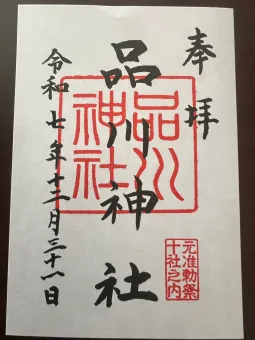 奉拝
品川神社
令和七年十二月三十一日
品川
神社
元准勅祭
十社之内